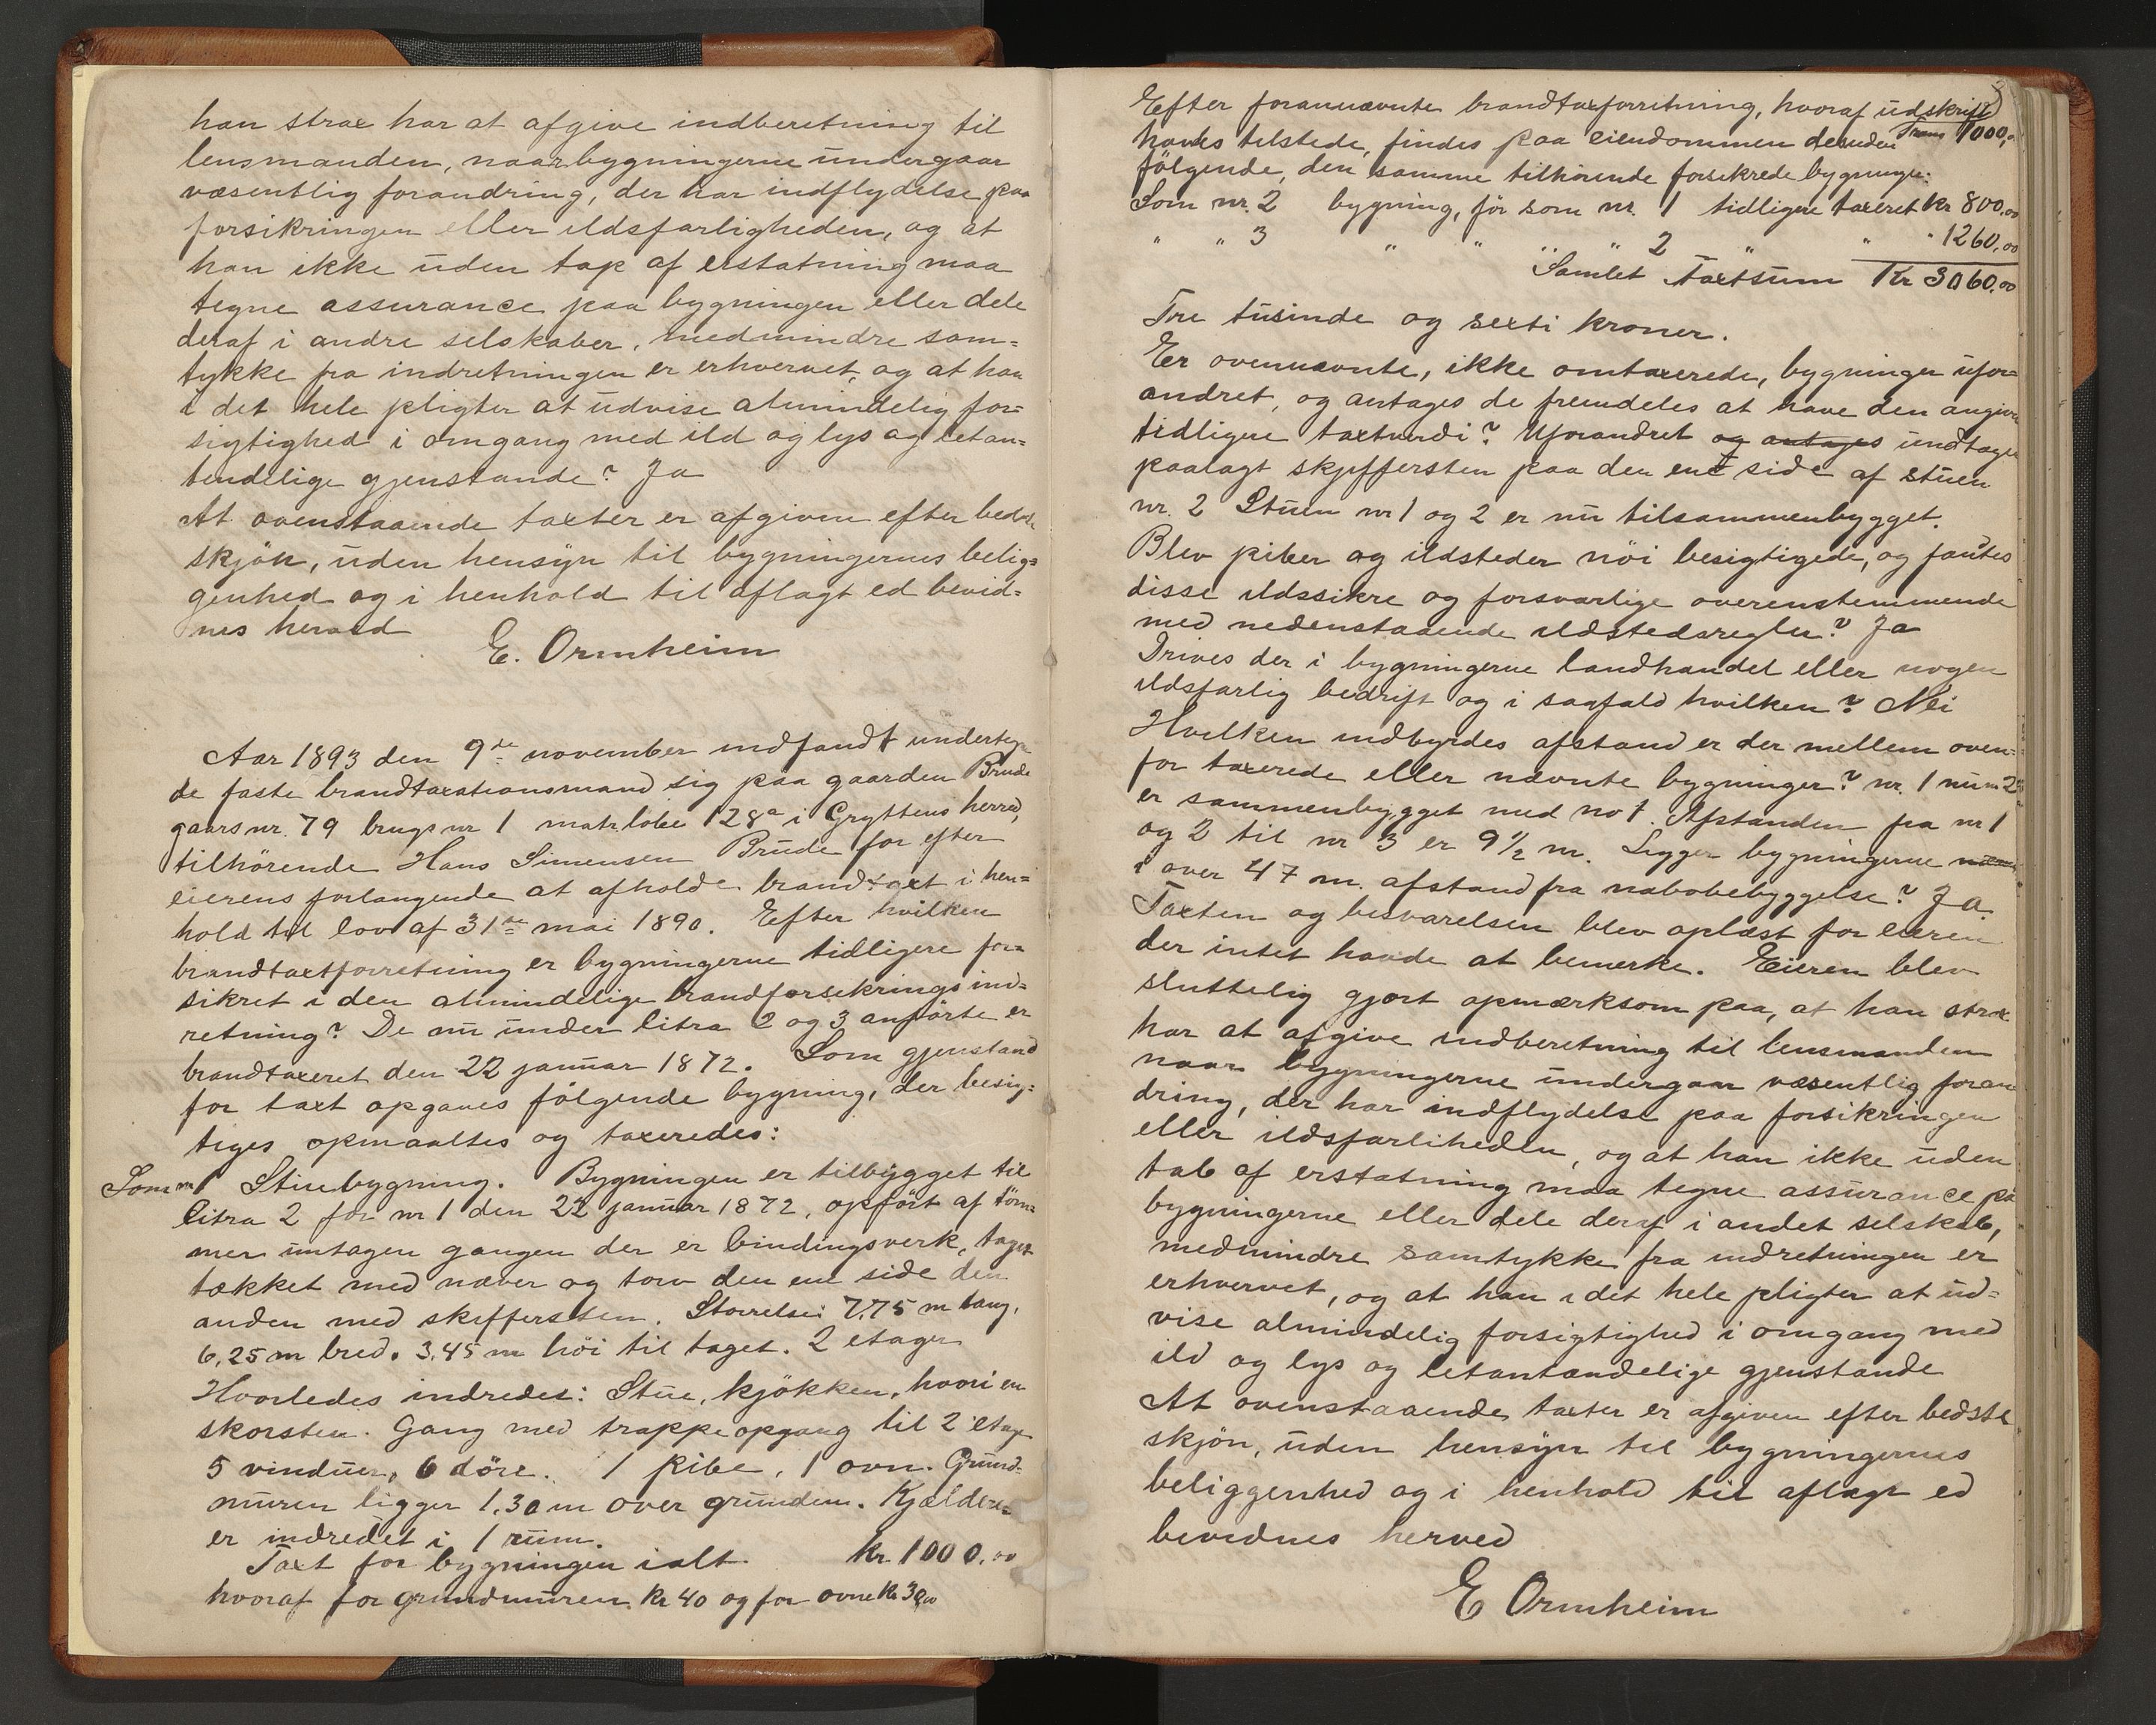 han strax har at afgive indberetning til
lensmanden, naar bygningerne undergaar
væsentlig forandring, der har indflydelse paa
forsikringen eller ildsfarligheden, og at
han ikke uden tap af erstatning maa
tegne assurance paa bygningen eller dele
deraf i andre selskaber, medmindre sam=
tykke fra indretningen er erhvervet, og at han
i det hele pligter at udvise almindelig for=
sigtighed i omgang med ild og lys og letan=
tendelige gjenstande? Ja
At ovenstaaende taxter er afgiven efter bedste
skjön, uden hensyn til bygningernes belig=
genhed og i henhold til aflagt ed bevid=
nes herved
E. Ormheim
Aar 1893 den 9de november indfandt undertegn
de faste brandtaxationsmand sig paa gaarden Brude
gaarsnr. 79 brugsnr 1 matr löbe 128a i Gryttens herred,
tilhörende Hans Simensen Brude for efter
eierens forlangende at afholde brandtaxt i hen=
hold til lov af 31te mai 1890. Efter hvilken
brandtaxtforretning er bygningerne tidligere for=
sikret i den almindelige brandforsekrings ind=
retning? De nu under litra 2 og 3 anförte er
brandtaxeret den 22 januar 1872. Som gjenstand
for taxt opgaves fölgende bygning, der besig=
tiges opmaaltes og taxeredes:
Som nr 1 Stuebygning. Bygningen er tilbygget til
litra 2 för nr 1 den 22 januar 1872, opfört af töm=
mer untagen gangen der er bindingsverk, taget
tækket med næver og torv den ene side den
anden med skiffersten. Storrelse: 7,75 m lang,
6,25 m bred. 3,45 m höi til taget. 2 etager
Hvorledes indredet: Stue, kjökken, hvori en
skorsten. Gang med trappeopgang til 2 etage
5 vinduer, 6 döre. 1 pibe, 1 ovn. Grund=
muren ligger 1,30 m over grunden. Kjælderen
er indredet i 1 rum.
Taxt for bygningen ialt. kr. 1000.00
hvoraf for grundmuren kr 40 og for ovne Kr 30,00
Efter forannævnte brandtaxforretning, hvoraf udskrift
havdes tilstede, findes paa eiendommen desuden Trans 1000,00
fölgende, den samme tilhörende forsekrede bygninger:
Som nr. 2 bygning, för som nr. 1 tidligere taxeret kr 800,00
" " 3 " " " " 2 " " " 1260,00
Samlet taxtsum Kr 3060,00
Tre tusinde og sexti kroner.
Er ovennævnte, ikke omtaxerede, bygninger ufor=
andret, og antages de fremdeles at have den angivne
tidligere taxtverdi? Uforandret og antages undtagen
paalagt skjffersten paa den ene side af stuen
nr. 2 Stuen nr 1 og 2 er nu tilsammenbygget.
Blev piber og ildsteder nöi besigtigede, og fantes
disse ildssikre og forsvarlige overenstemmende
med nedenstaaende ildstedsregler? Ja
Drives der i bygningerne landhandel eller nogen
ildsfarlig bedrift og i saafald hvilken? Nei
Hvilken indbyrdes afstand er der mellem oven=
for taxerede eller nævnte bygninger? nr. 1 nu nr 2
er sammenbygget med no 1. Afstanden fra nr 1
og 2 til nr 3 er 9 1/2 m. Ligger bygningerne
i over 47 m. afstand fra nabobebyggelse? Ja.
Taxten og besvarelsen blev oplæst for eieren
der intet havde at bemerke. Eieren blev
sluttelig gjort opmærksom paa, at han strax
har at afgive indberetning til lensmanden
naar bygningerne undergaar væsentlig foran
dring, der har indflydelse paa forsikringen
eller ildsfarliheden, og at han ikke uden
tab af erstatning maa tegne assurance på
bygningerne eller dele deraf i andet selskab,
medmindre samtykke fra indretningen er
erhvervet, og at han i det hele pligter at ud=
vise almindelig forsigtighed i omgang med
ild og lys og letantændelige gjenstande
At ovenstaaende taxter er afgiven efter bedste
skjön, uden hensyn til bygningernes
beliggenhed og i henhold til aflagt ed
bevidnes herved
E Ormheim